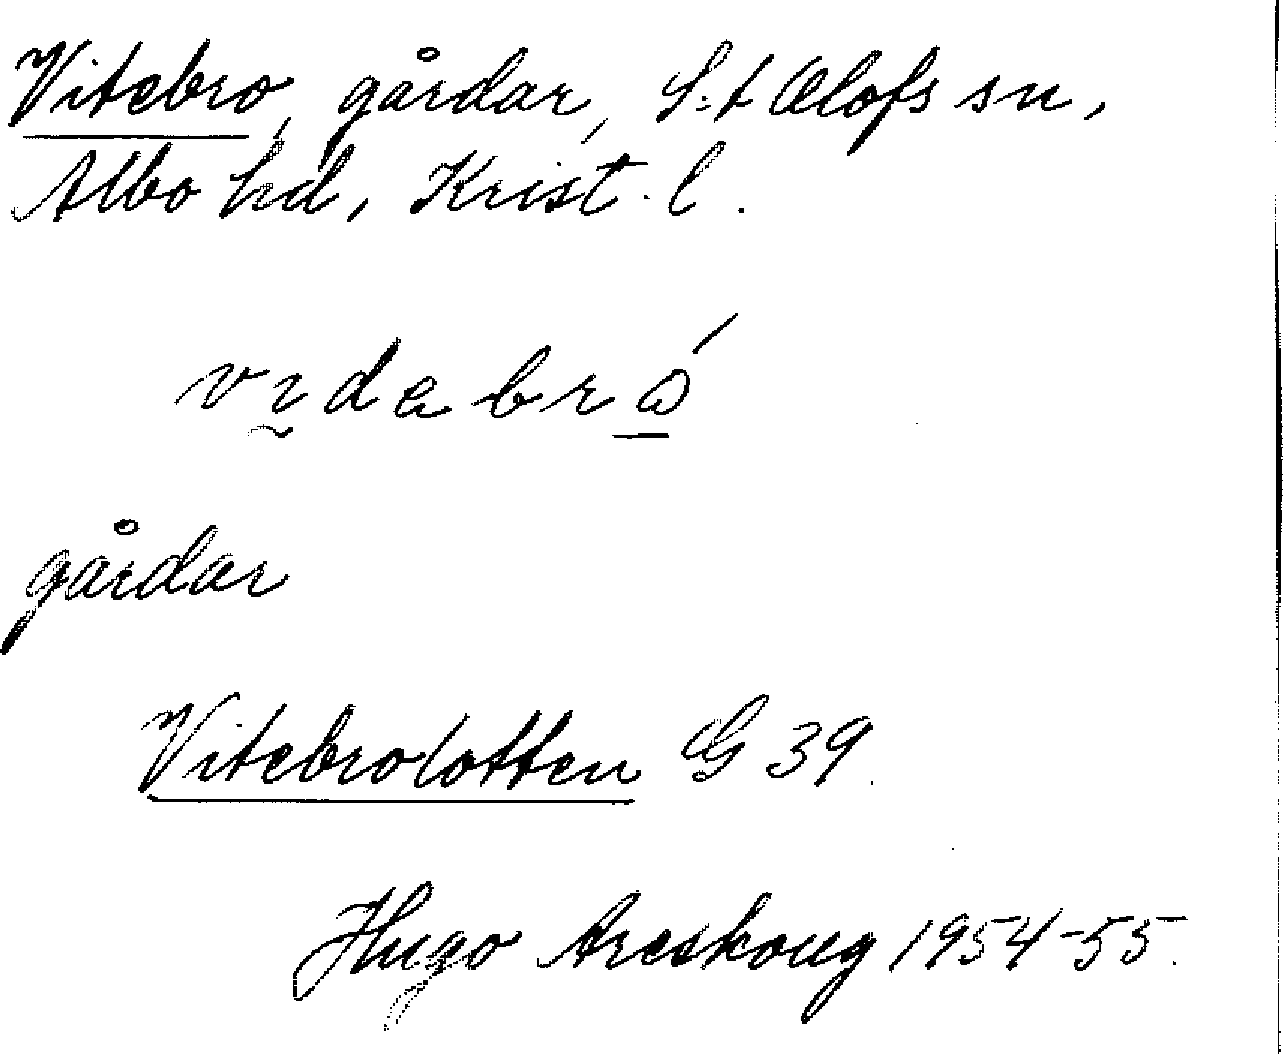 Vitebro, gårdar, S:t Olofs sn,
Albo hd, Krist. l.
vidabró
gårdar
Vitebrolotten G 39.
Hugo Areskoug 1954-55.